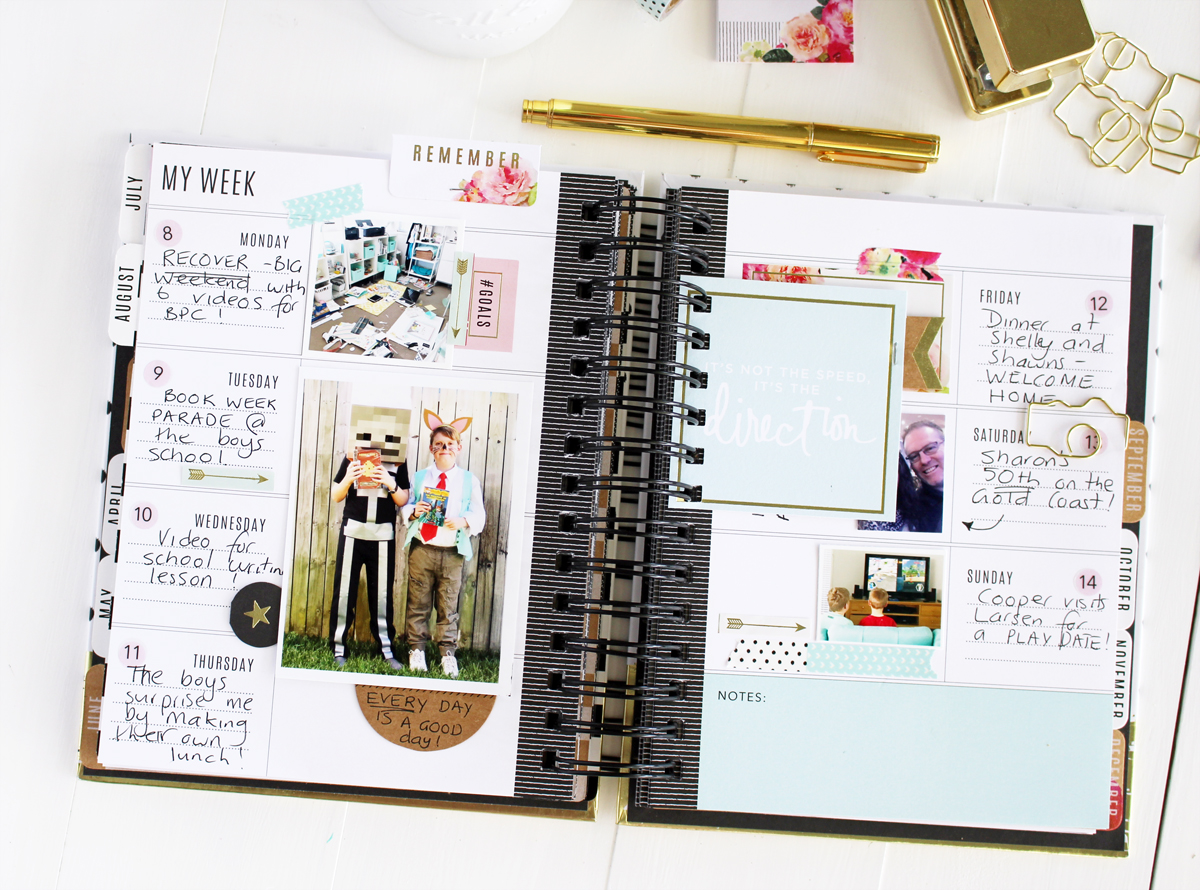 REMEMBER
MY WEEK
JULY
AUGUST
APRIL
MAY
JUNE
8
MONDAY
RECOVER - BIG
Weekend with
6 videos for
BPC!
#GOALS
9
TUESDAY
BOOK WEEK
PARADE @
the boys
school!
10
WEDNESDAY
Video for
school writing
lesson!
11
THURSDAY
The boys
surprise me
by making
their own
lunch!
EVERY DAY
IS A GOOD
day!
IT'S NOT THE SPEED,
IT'S THE
direction
FRIDAY
12
Dinner at
Shelly and
Shawns -
WELCOME
HOME
SATURDAY
13
Sharons
50th on the
Gold Coast!
SUNDAY
14
Cooper visits
Larsen for
a PLAY DATE!
NOTES:
SEPTEMBER
OCTOBER
NOVEMBER
DECEMBER